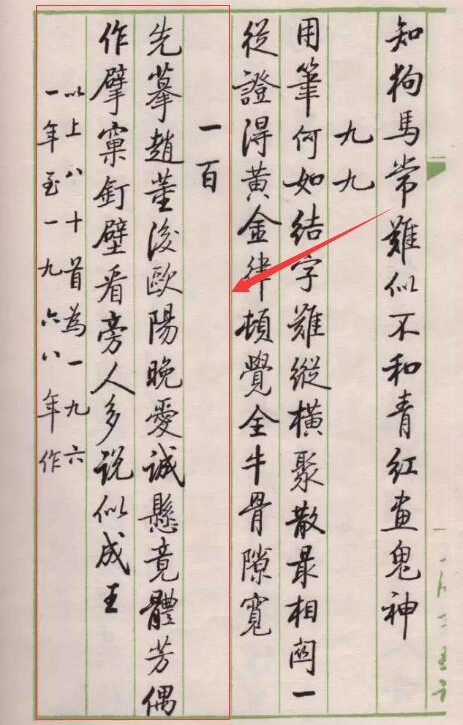 知狗馬常難似不和青紅畫鬼神
九九
用筆何如結字難縱橫聚散最相關一
從證得黃金律頓覺全牛骨隙寬
一百
先摹趙董後歐陽晚愛誠懸竟體芳偶
作擘窠釘壁看旁人多說似成王
以上八十首為一九六
一年至一九六八年作